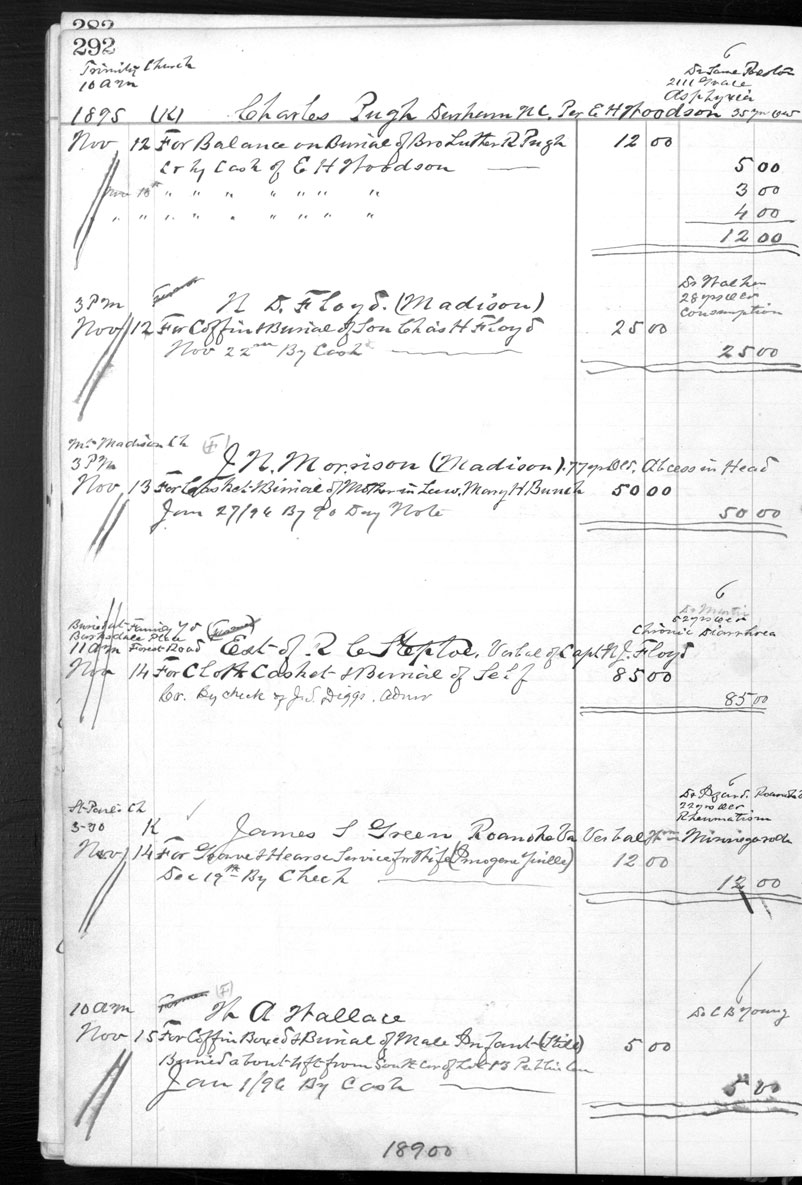 282
292
Trinity Church
10 am
6
Dr Lane
2111 Grace
Asphyxia
1895 (K) Charles Pugh Durham N.C. Per E H Woodson 35 yrs
Nov 12 For Balance on Burial of Bro Luther R Pugh 12 00
Cr by Cash of E H Woodson 5 00
Nov 18th " " " " " " " 3 00
" " " " " " " " " 4 00
12 00
Dr Walker
28 yrs
Consumption
3 PM N D. Floyd. (Madison)
Nov 12 For Coffin & Burial of Son Chas H Floyd 25 00
Nov 22nd By Cash 25 00
Mt Madison Ch (F)
3 PM J N. Morrison (Madison). 77 yrs Abcess in Head
Nov 13 For Casket & Burial of Mother in Law, Mary H Bunch 50 00
Jan 27/96 By 90 Day Note 50 00
6
Dr Martin
52 yrs
Chronic Diarrhoea
Buried at Family
Barksdale Place
11 am Forest Road Est of R C Steptoe. Verbal of Capt N. J. Floyd
Nov 14 For Cloth Casket & Burial of Self 85 00
Cr. By check of J. S. Diggs. Admr 85 00
6
Dr Roanoke
22 yrs
Rheumatism
St Paul's Ch
3-30 K James S Green Roanoke Va Verbal
Nov 14 For Grave & Hearse Service for Wife (Imogene) 12 00
Dec 19th By Check 12 00
10 am (F) W A Wallace
Dr C B Young
Nov 15 For Coffin Boxed & Burial of Male Infant (Still) 5 00
Buried about 4 ft from South Cor of Lot 13
Jan 1/96 By Cash 5 00
189 00